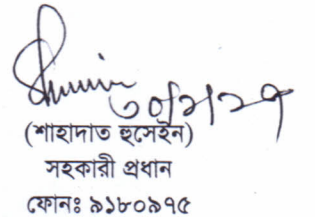 (শাহাদাত হুসেইন)
সহকারী প্রধান
ফোনঃ ৯১৮০৯৭৫